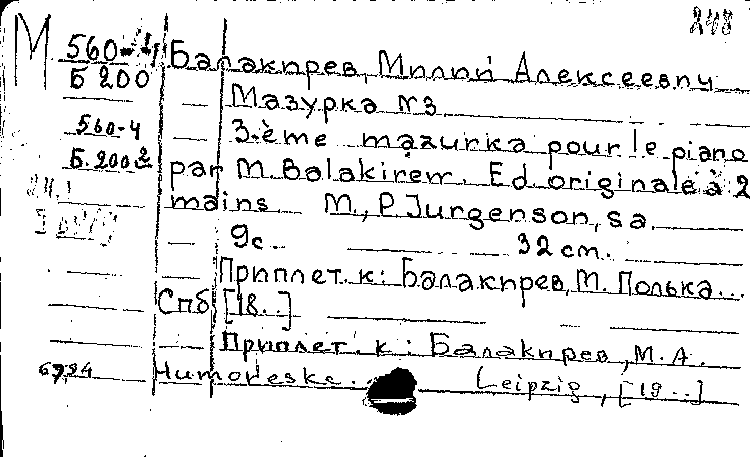 248
М 560-4 Балакирев, Милий Алексеевич
Б 200
Мазурка №3
560-4 3-ème mazurka pour le piano
Б.200 par M. Balakirew. Ed. originale à 2
mains M., P. Jurgenson, s.a.
9с. 32 cm.
Приплет. к: Балакирев, М. Полька...
Спб [18..]
Приплет. к: Балакирев, М.А.
Humoreske. Leipzig, [19..]